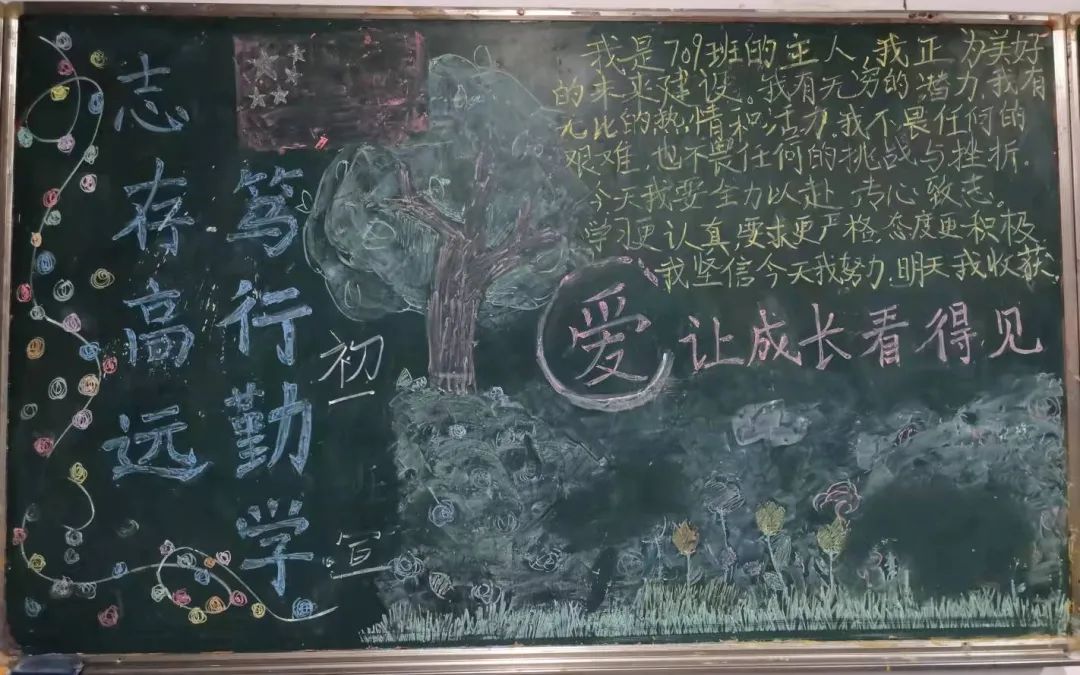 志存高远
笃行勤学
初一
宣
我是709班的主人,我正为美好
的未来建设。我有无穷的潜力,我有
无比的热情和活力,我不畏任何的
艰难,也不畏任何的挑战与挫折.
今天我要全力以赴,专心致志。
学习更认真,要求更严格,态度更积极
我坚信今天我努力,明天我收获.
爱让成长看得见